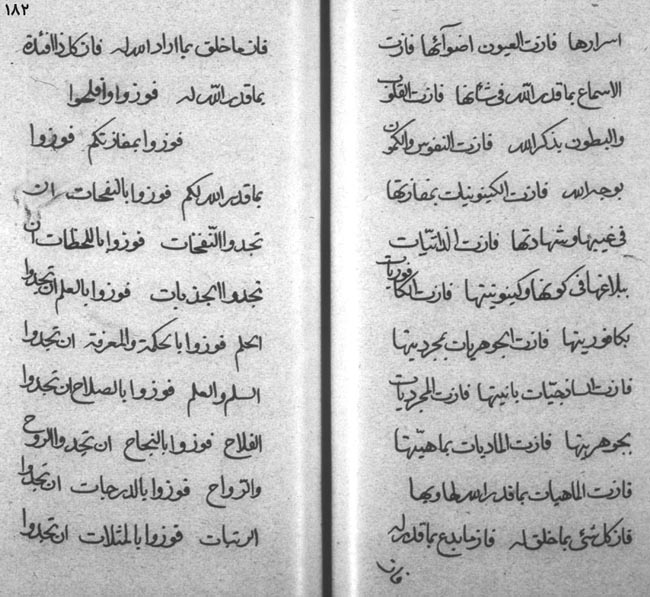 ١٨٢
اسرارها فازت العيون اضوآئها فازت
الاسماع بما قدر الله فی شأنها فازت القلوب
والبطون بذكر الله فازت النفوس والكمون
بوجه الله فازت الكينونيات بمفازتها
فی غيبها وشهادتها فازت الذاتيات
ببلاغها فی كونها وكينونيتها فازت الكافوريات
بكافوريتها فازت الجوهريات بمجرديتها
فازت الساذجيات بانيتها فازت المجرديات
بجوهريتها فازت الماديات بماهيتها
فازت الماهيات بما قدر الله لها وبها
فاز كل شئ بما خلق له فاز ما بدع بما قدر له
فاز
فاز ما خلق بما اراد الله له فاز كل ذا افئدة
بما قدر الله له فوزوا وافلحوا
فوزوا بمفازتكم فوزوا
بما قدر الله لكم فوزوا بالنفحات ان
تجدوا النفخات فوزوا باللحظات ان
تجدوا الجذبات فوزوا بالعلم ان تجدوا
الحلم فوزوا بالحكمة والمعرفة ان تجدوا
السلم والعلم فوزوا بالصلاح ان تجدوا
الفلاح فوزوا بالنجاح ان تجدوا الروح
والرواح فوزوا بالدرجات ان تجدوا
الرتبات فوزوا بالمثلات ان تجدوا